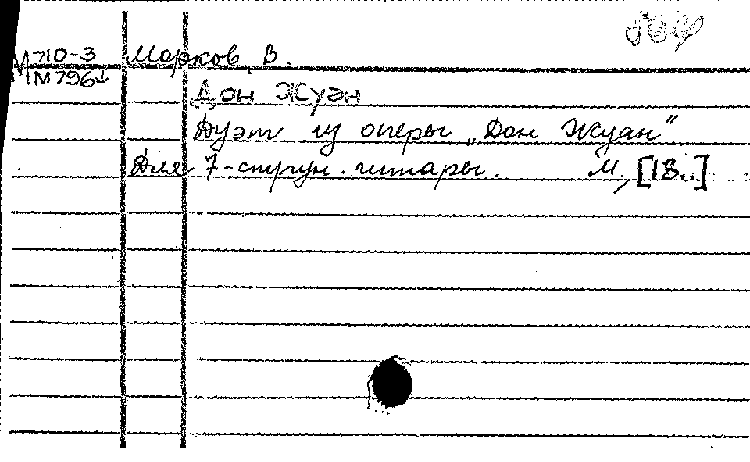 М710-3 Марков, В.
ММ796
Дон Жуан
Дуэт из оперы „Дон Жуан"
Для 7-струн. гитары. М, [18..]